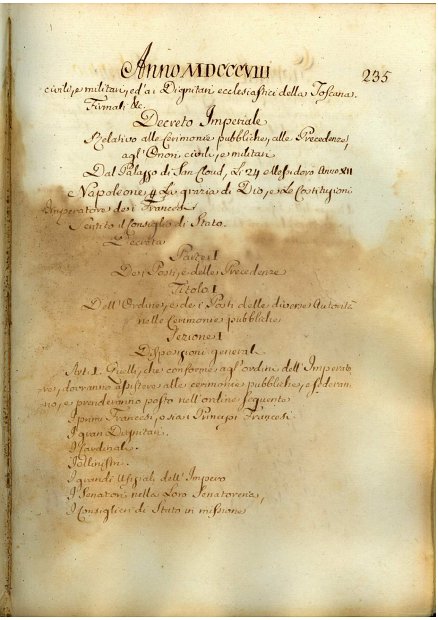 Anno MDCCCVIII
235
civili, e militari, ed' ai Dignitari ecclesiastici della Toscana.
Firmati &c.
Decreto Imperiale
Relativo alle Cerimonie pubbliche, alle Precedenze,
agl' Onori civili, e militari
Dal Palazzo di San Cloud, Li 24 Messidoro Anno XII
Napoleone La grazia di Dio, e Le Costituzioni
Imperatore dei Francesi
Sentito il Consiglio di Stato.
Decreta
Parte I
Dei Posti, e delle Precedenze
Titolo I
Dell' Ordine, e dei Posti delle diverse Autorità
nelle Cerimonie pubbliche
Sezione I
Disposizioni generali
Art. I. Quelli, che conforme agl' ordini dell' Imperato
re, dovranno assistere alle cerimonie pubbliche,
no, e prenderanno posto nell' ordine seguente
I primi Francesi, o sian Principi Francesi
I gran Dignitari.
I Cardinali.
I Ministri.
I grandi Ufiziali dell' Impero
I Senatori nella Loro Senatoreria,
I Consiglieri di Stato in missione